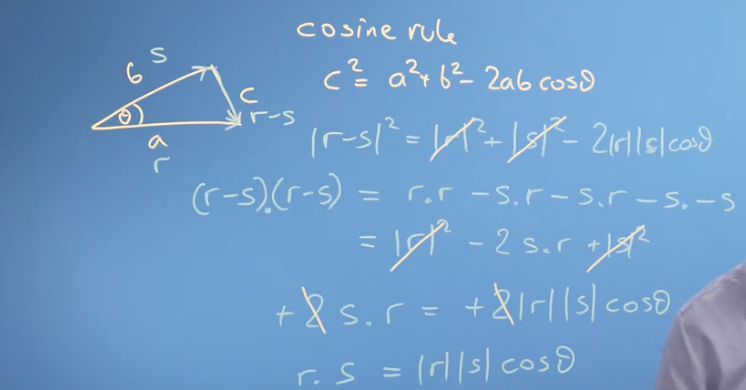 cosine rule
c² = a² + b² - 2ab cosθ
b s
θ
c
a
r-s
r
|r-s|² = |r|² + |s|² - 2|r||s|cosθ
(r-s).(r-s) = r.r - s.r - s.r - s.-s
= |r|² - 2 s.r + |s|²
+2 s.r = +2|r||s| cosθ
r.s = |r||s| cosθ